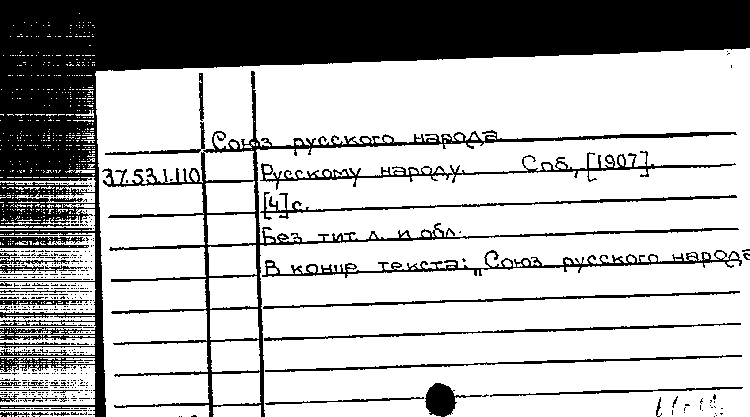 Союз русского народа
37.53.1.110 Русскому народу. Спб., [1907].
[4]с.
Без тит. л. и обл.
В конце текста: „Союз русского народа